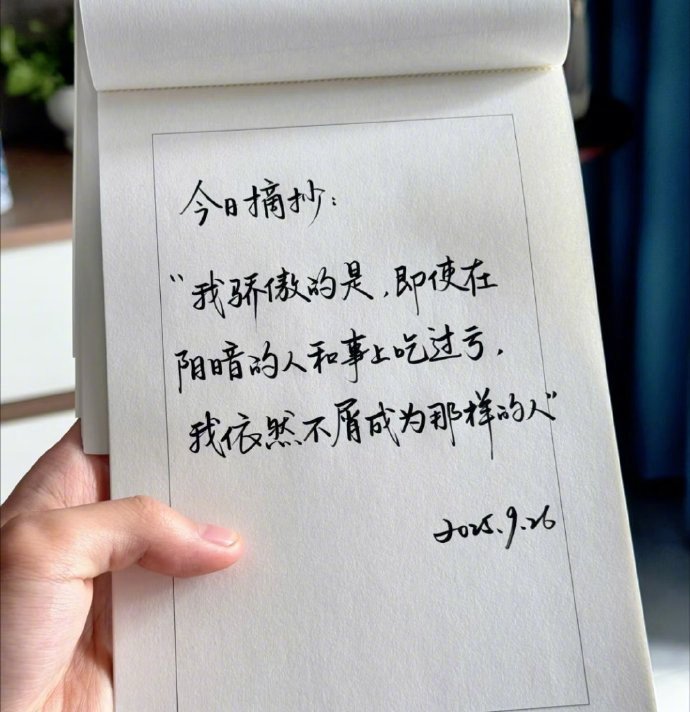 今日摘抄：
“我骄傲的是，即使在
阴暗的人和事上吃过亏，
我依然不屑成为那样的人”
2025.9.26